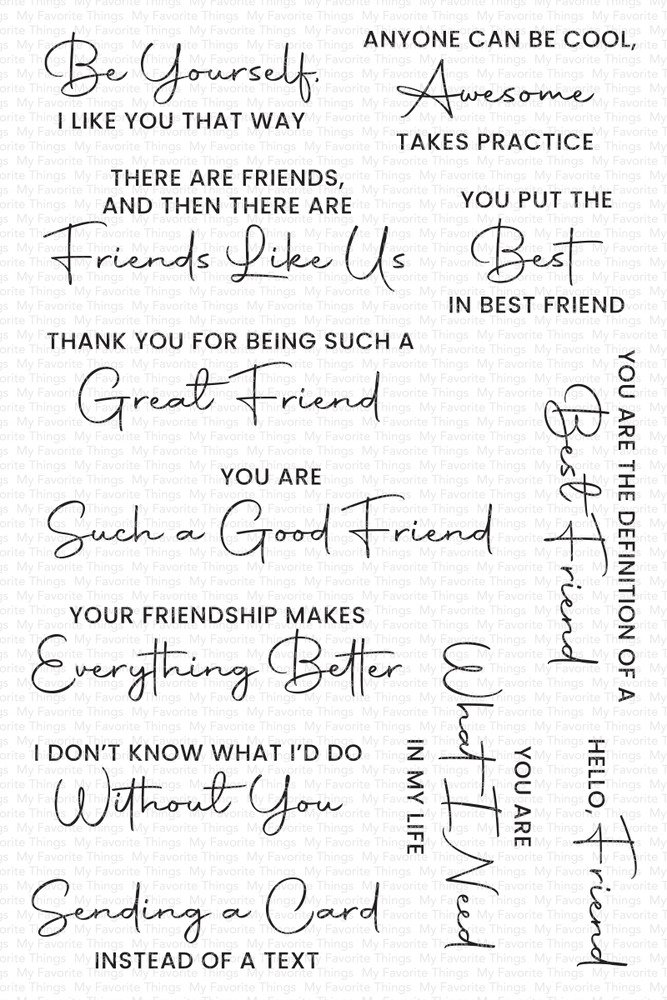 Be Yourself.
I LIKE YOU THAT WAY
ANYONE CAN BE COOL,
Awesome
TAKES PRACTICE
THERE ARE FRIENDS,
AND THEN THERE ARE
Friends Like Us
YOU PUT THE
Best
IN BEST FRIEND
THANK YOU FOR BEING SUCH A
Great Friend
YOU ARE THE DEFINITION OF A
Best Friend
YOU ARE
Such a Good Friend
YOUR FRIENDSHIP MAKES
Everything Better
YOU ARE
What I Need
IN MY LIFE
HELLO, Friend
I DON'T KNOW WHAT I'D DO
Without You
Sending a Card
INSTEAD OF A TEXT
My Favorite Things